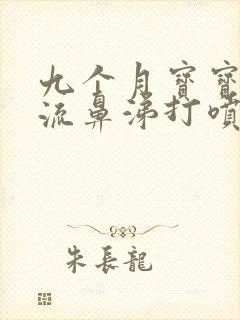 九个月寶寶
流鼻涕打噴
朱長龍